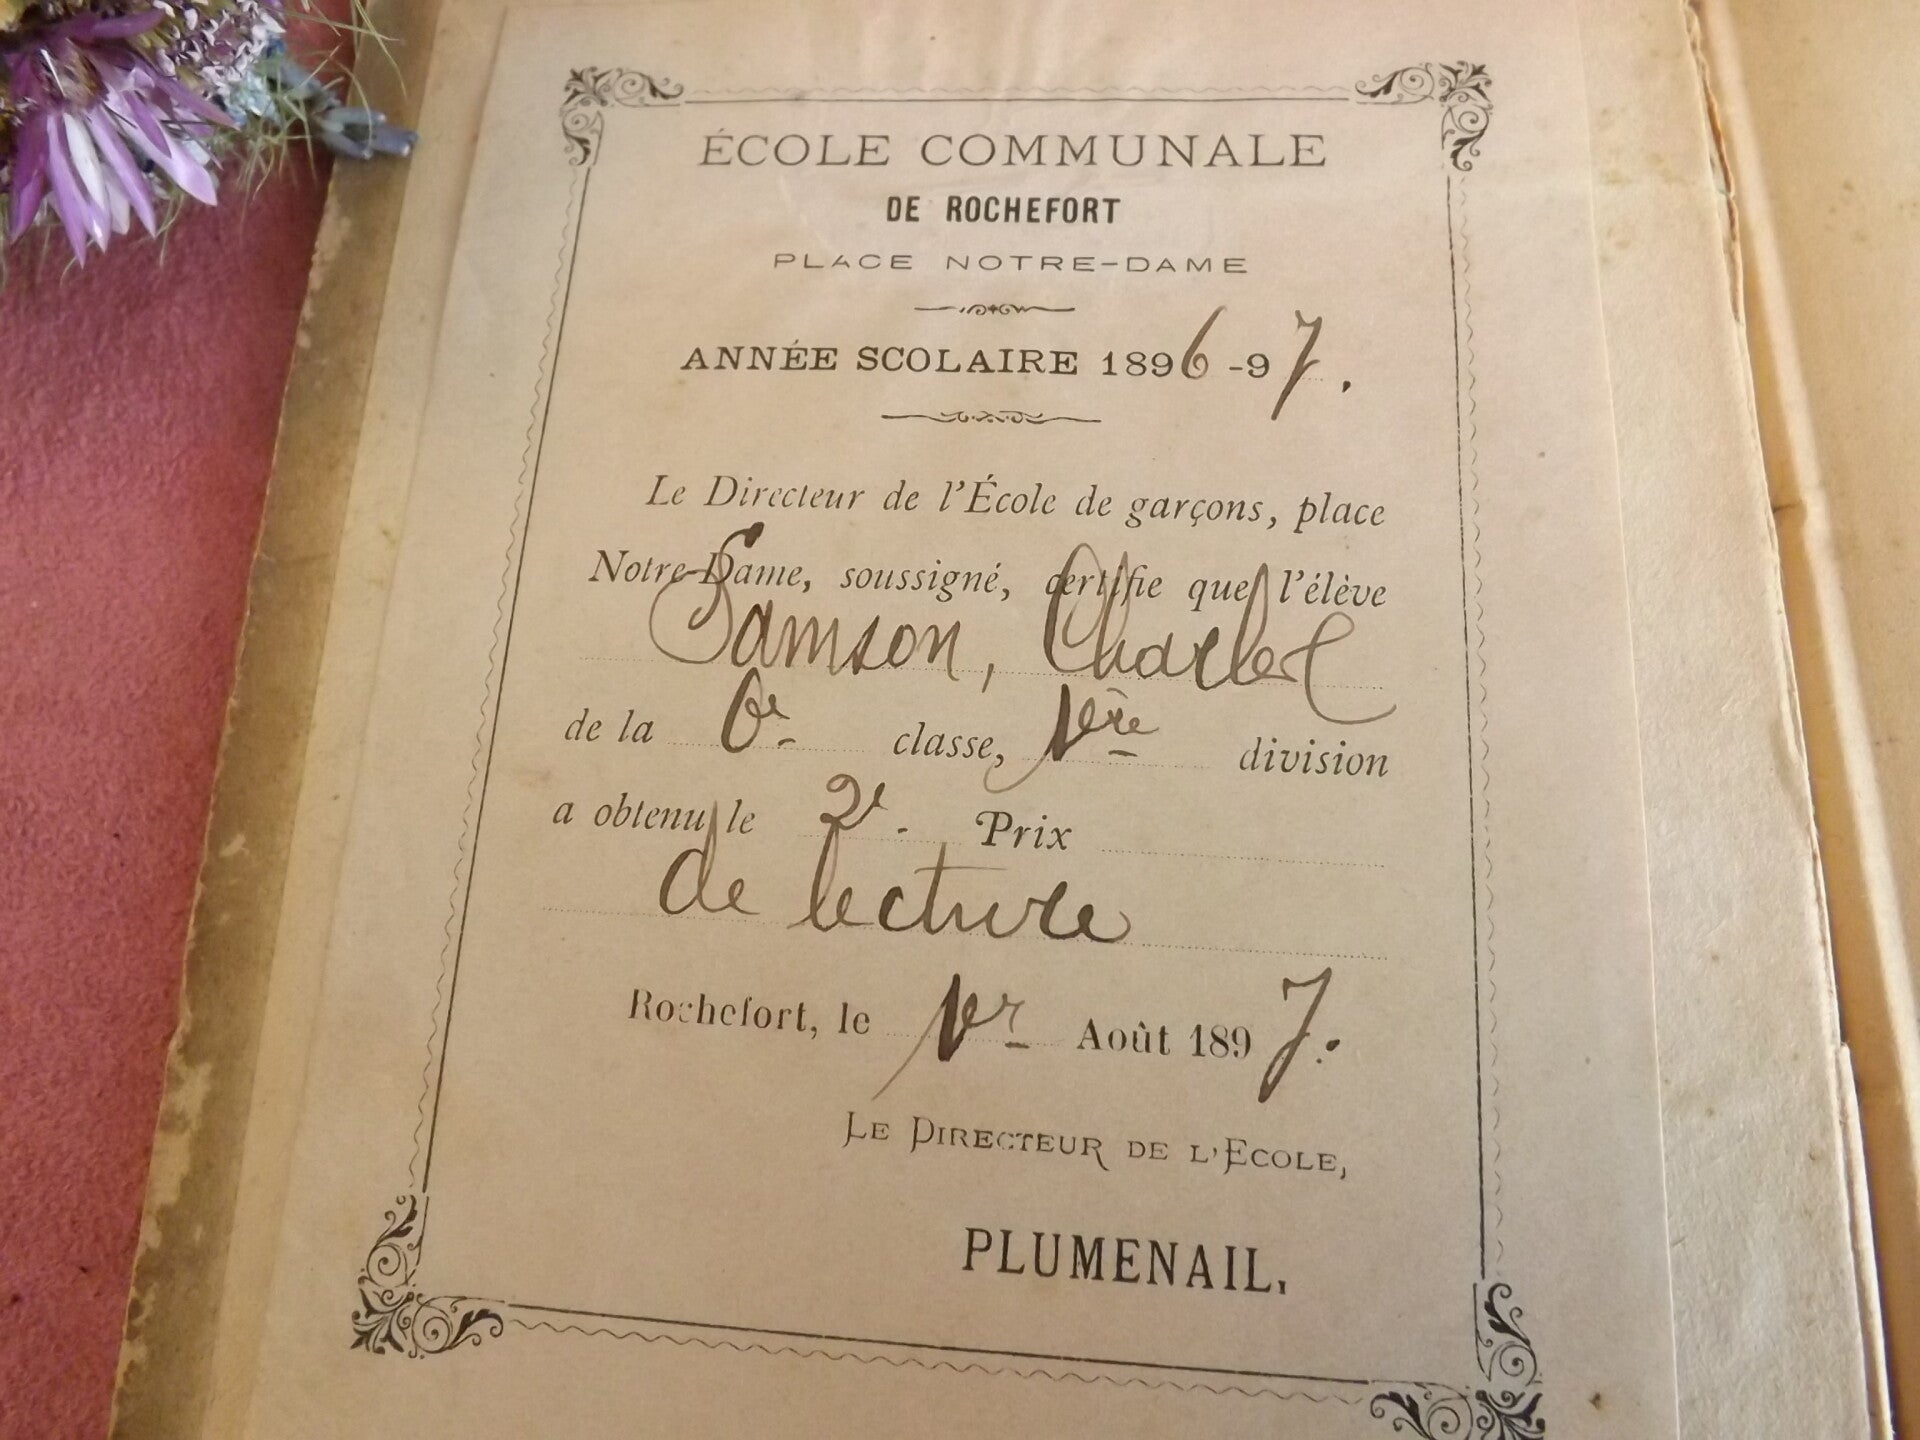 ÉCOLE COMMUNALE
DE ROCHEFORT
PLACE NOTRE-DAME
ANNÉE SCOLAIRE 1896-97.
Le Directeur de l'École de garçons, place
Notre-Dame, soussigné, certifie que l'élève
Samson, Charles
de la 6e classe, 1ère division
a obtenu le 2e. Prix
de lecture
Rochefort, le 1er Août 1897.
LE DIRECTEUR DE L'ECOLE,
PLUMENAIL,